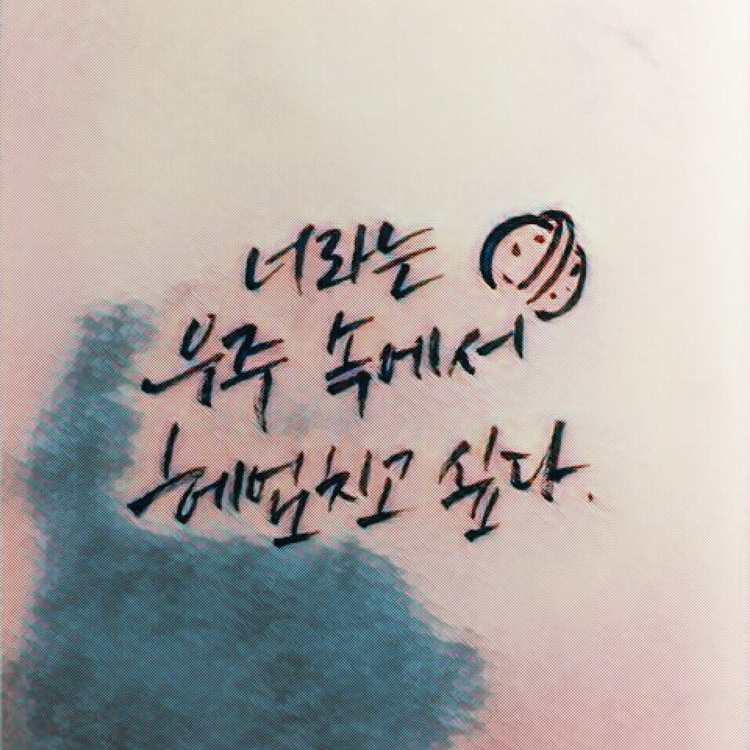 너라는
우주 속에서
헤엎치고 싶다.